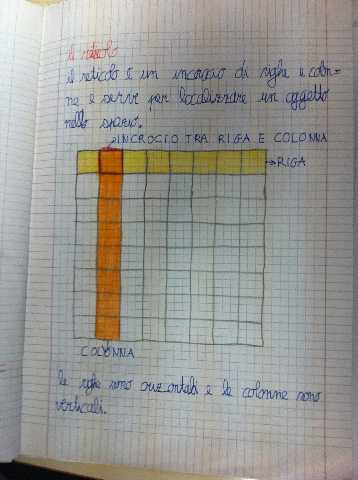 Il reticolo
Il reticolo è un incrocio di righe e colon=
ne e serve per localizzare un oggetto
nello spazio.
INCROCIO TRA RIGA E COLONNA
RIGA
COLONNA
Le righe sono orizzontali e le colonne sono
verticali.